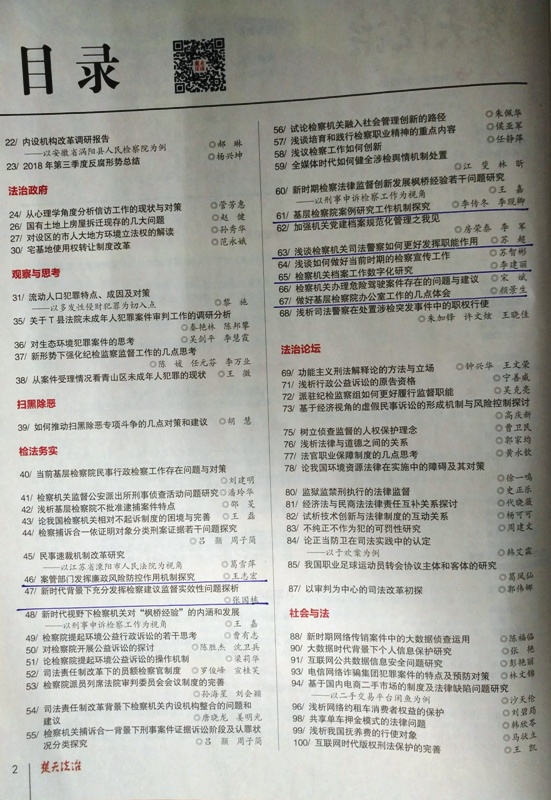 目录
22/ 内设机构改革调研报告
——以安徽省涡阳县人民检察院为例 ◎郝 琳
23/ 2018年第三季度反腐形势总结 ◎杨兴坤
法治政府
24/ 从心理学角度分析信访工作的现状与对策 ◎管芳惠
26/ 国有土地上房屋拆迁现存的几大问题 ◎赵 健
27/ 对设区的市人大地方环境立法权的解读 ◎孙秀华
30/ 宅基地使用权转让制度改革 ◎范永斌
观察与思考
31/ 流动人口犯罪特点、成因及对策
——以多发性侵财犯罪为切入点 ◎黎 施
35/ 关于T县法院未成年人犯罪案件审判工作的调研分析
◎秦艳林 陈邦攀
36/ 对生态环境犯罪案件的思考 ◎吴剑平 李慧霞
37/ 新形势下强化纪检监察监督工作的几点思考
◎陈 媛 任元芬 李万业
38/ 从案件受理情况看青山区未成年人犯罪的现状 ◎王 微
扫黑除恶
39/ 如何推动扫黑除恶专项斗争的几点对策和建议 ◎胡 慧
检法务实
40/ 当前基层检察院民事行政检察工作存在问题与对策
◎刘建明
41/ 检察机关监督公安派出所刑事侦查活动问题研究 ◎潘玲华
42/ 浅析基层检察院不批准逮捕案件特点 ◎邵 芙
43/ 论我国检察机关相对不起诉制度的困境与完善 ◎王 磊
44/ 检察捕诉合一依证明对象分类列案证据若干问题探究
◎吕 颢 周子简
45/ 民事速裁机制改革研究
——以江苏省溧阳市人民法院为视角 ◎葛雪萍
46/ 案管部门发挥廉政风险防控作用机制探究 ◎王志宏
47/ 新时代背景下充分发挥检察建议监督实效性问题探析
◎张国栋
48/ 新时代视野下检察机关对“枫桥经验”的内涵和发展
——以刑事申诉检察工作为视角 ◎王 嘉
49/ 检察院提起环境公益行政诉讼的若干思考 ◎曹有志
50/ 对检察院开展公益诉讼的探讨 ◎陈胜杰 沈卫兵
51/ 论检察院提起环境公益诉讼的操作机制 ◎梁莉华
52/ 司法责任制改革下的员额检察官制度 ◎罗俊峰 宣桂芙
53/ 检察院派员列席法院审判委员会会议制度的完善
◎孙海星 刘会颖
54/ 司法责任制改革背景下检察机关内设机构整合的问题和
建议 ◎唐晓龙 姜明光
55/ 检察机关捕诉合一背景下刑事案件证据诉讼阶段及认罪状
况分类探究 ◎吕 颢 周子简
56/ 试论检察机关融入社会管理创新的路径 ◎朱佩华
57/ 浅谈培育和践行检察职业精神的重点内容 ◎侯亚军
58/ 浅议检察工作如何创新 ◎任静萍
59/ 全媒体时代如何健全涉检舆情机制处置
◎江 斐 林 昕
60/ 新时期检察法律监督创新发展枫桥经验若干问题研究
——以刑事申诉检察工作为视角 ◎王 嘉
61/ 基层检察院案例研究工作机制探究 ◎李传冬 李现卿
62/ 加强机关党建档案规范化管理之我见
◎房荣泰 李 军
63/ 浅谈检察机关司法警察如何更好发挥职能作用 ◎苏 超
64/ 浅谈如何做好当前时期的检察宣传工作 ◎苏智彬
65/ 检察机关档案工作数字化研究 ◎李建丽
66/ 检察机关办理危险驾驶案件存在的问题与建议 ◎宋 斌
67/ 做好基层检察院办公室工作的几点体会 ◎颜景生
68/ 浅析司法警察在处置涉检突发事件中的职权行使
◎朱加锋 许文炫 王晓佳
法治论坛
69/ 功能主义刑法解释论的方法与立场 ◎钟兴华 王文荣
71/ 浅析行政公益诉讼的原告资格 ◎宁善威
72/ 派驻纪检监察组如何更好履行监督职能 ◎吴克亮
73/ 基于经济视角的虚假民事诉讼的形成机制与风险控制探讨
◎高庆新
75/ 树立侦查监督的人权保护理念 ◎曹卫民
76/ 浅析法律与道德之间的关系 ◎郭家均
77/ 法官职业保障制度的几点思考 ◎黄永钦
78/ 论我国环境资源法律在实施中的障碍及其对策
◎徐一鸣
80/ 监狱监禁刑执行的法律监督 ◎史正乐
81/ 经济法与民商法法律责任互补关系探讨 ◎代晓茨
82/ 试析技术创新与法律制度的互动关系 ◎杨可可
83/ 不纯正不作为犯的可罚性研究 ◎周建文
84/ 论正当防卫在司法实践中的认定
——以于欢案为例 ◎韩艾霖
85/ 我国职业足球运动员转会协议主体和客体的研究
◎葛凤仙
87/ 以审判为中心的司法改革初探 ◎郭伟娜
社会与法
88/ 新时期网络传销案件中的大数据侦查运用 ◎陈福临
90/ 大数据时代背景下个人信息保护研究 ◎张 艳
91/ 互联网公共数据信息安全问题研究 ◎彭艳丽
93/ 电信网络诈骗集团犯罪案件的特点及预防对策 ◎林文锦
94/ 基于国内电商二手市场的制度及法律缺陷问题研究
——以二手交易平台闲鱼为例 ◎沙天伦
96/ 浅析网络约租车消费者权益的保护 ◎刘碧局
98/ 共享单车押金模式的法律问题 ◎韩欣芩
99/ 浅析我国抚养费的行使对象 ◎马欣立
100/ 互联网时代版权刑法保护的完善 ◎王 凯
2 楚天法治